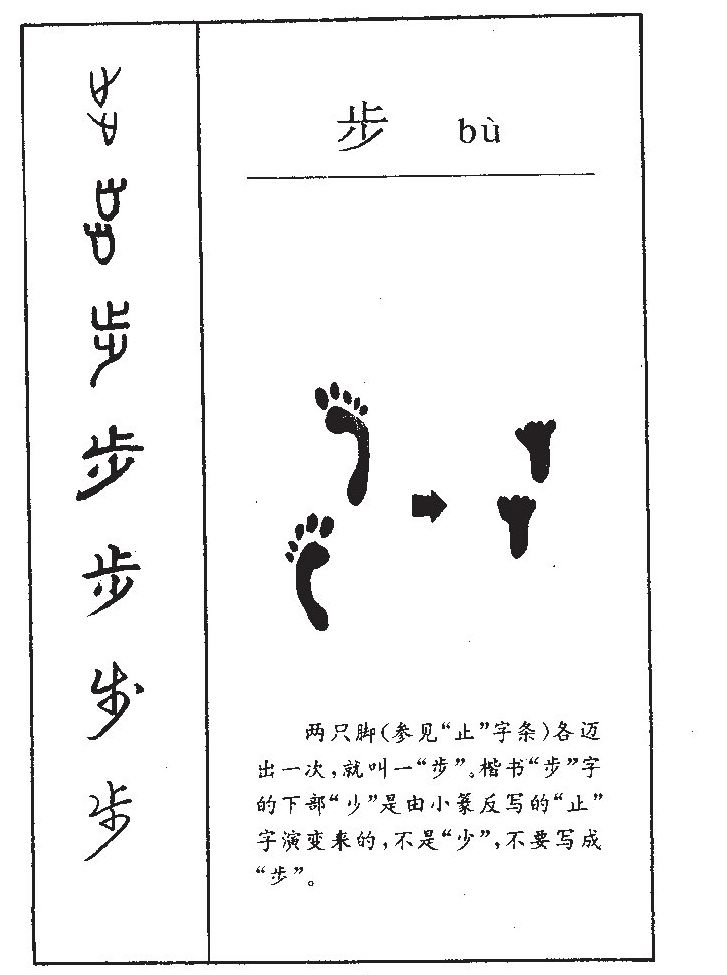 步 bù
步
步
步
步
步
步
步
两只脚(参见“止”字条)各迈
出一次,就叫一“步”。楷书“步”字
的下部“少”是由小篆反写的“止”
字演变来的,不是“少”,不要写成
“歩”。